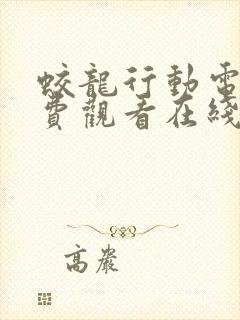 蛟龍行動電
費觀看在綫
高嚴